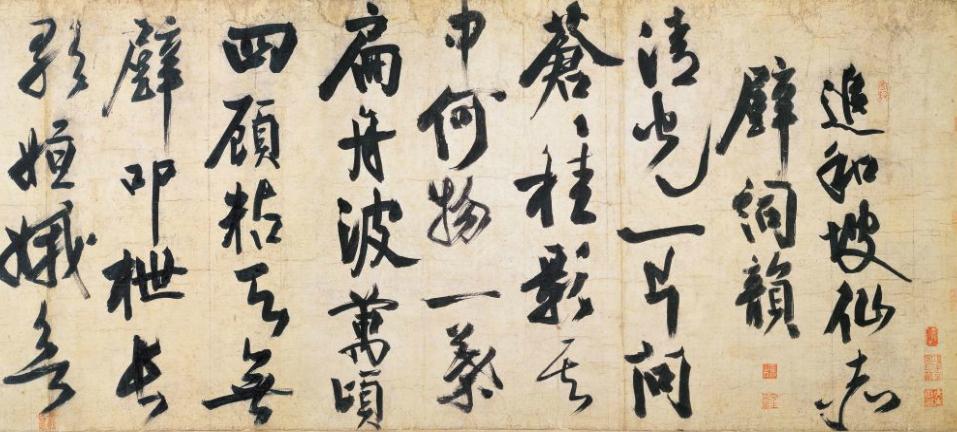 追和坡仙赤
壁詞韻
清光一片問
蒼〻桂影其
中何物一葉
扁舟波萬頃
四顧粘天無
壁叩枻長
歌姮娥欲